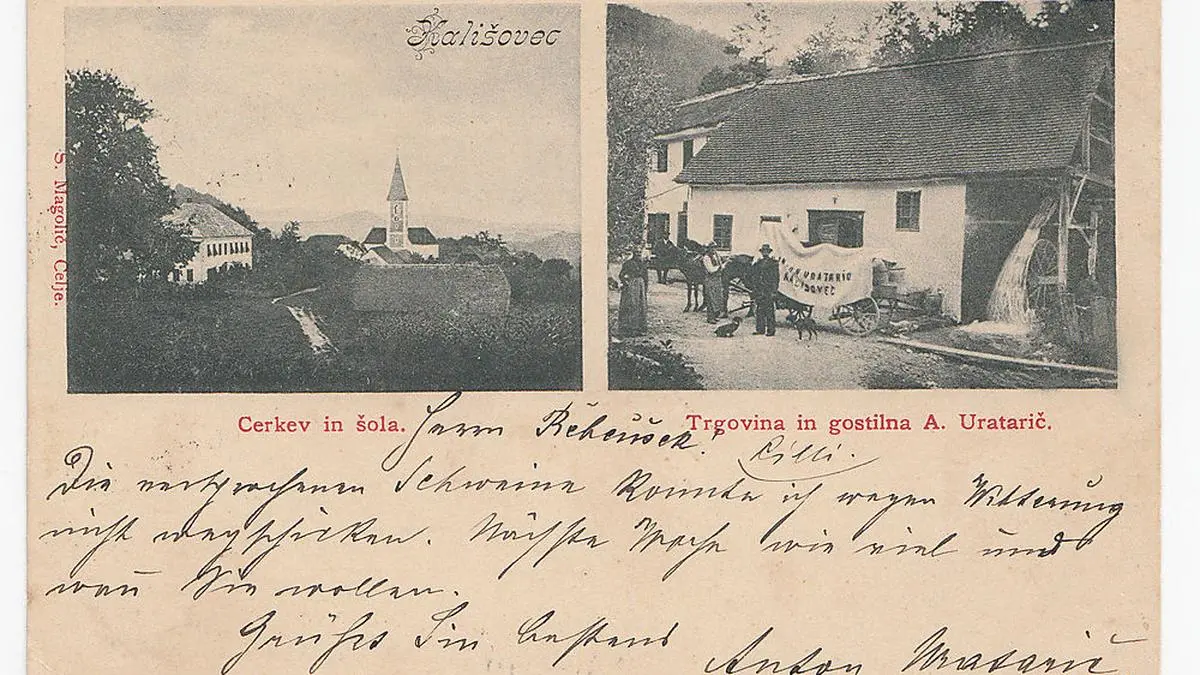 Kališovec
S. Magolič, Celje.
A. URATARIČ
KALIŠOVEC
Cerkev in šola.
Trgovina in gostilna A. Uratarič.
Herrn !
Cilli.
Die versprochenen Schweine konnte ich wegen Witterung
nicht wegschicken. Nächste Woche wie viel und
wan Sie wollen.
Grüßt Sie bestens
Anton Uratarič